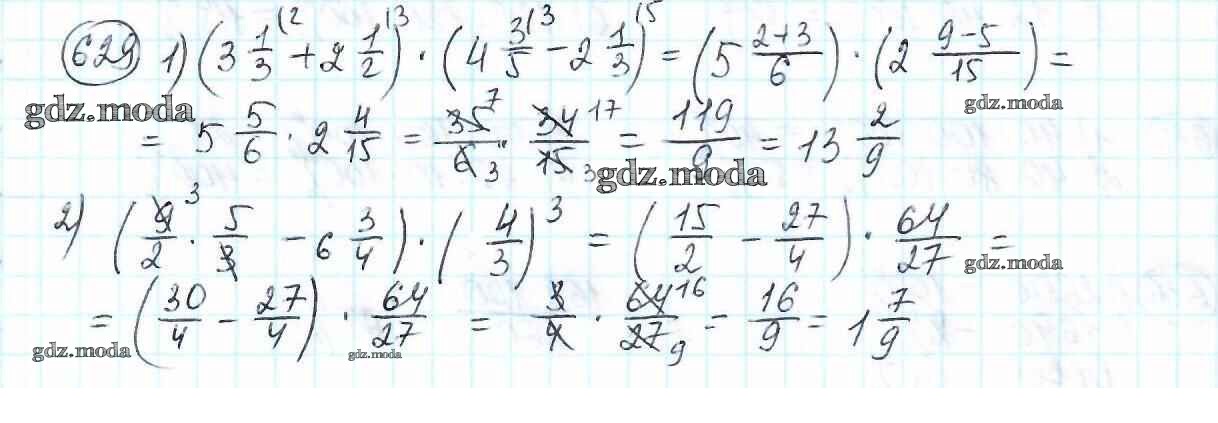 629 1) (3 1/3 (2 + 2 1/2 (3) · (4 3/5 (3 − 2 1/3 (5) = (5 2+3/6) · (2 9−5/15) =
gdz.moda gdz.moda
= 5 5/6 · 2 4/15 = 35 7/6 3 · 34 17/15 3 = 119/9 = 13 2/9
gdz.moda
2) (9 3/2 · 5/3 − 6 3/4) · (4/3)³ = (15/2 − 27/4) · 64/27 =
gdz.moda
= (30/4 − 27/4) · 64/27 = 3/4 · 64 16/27 9 = 16/9 = 1 7/9
gdz.moda gdz.moda